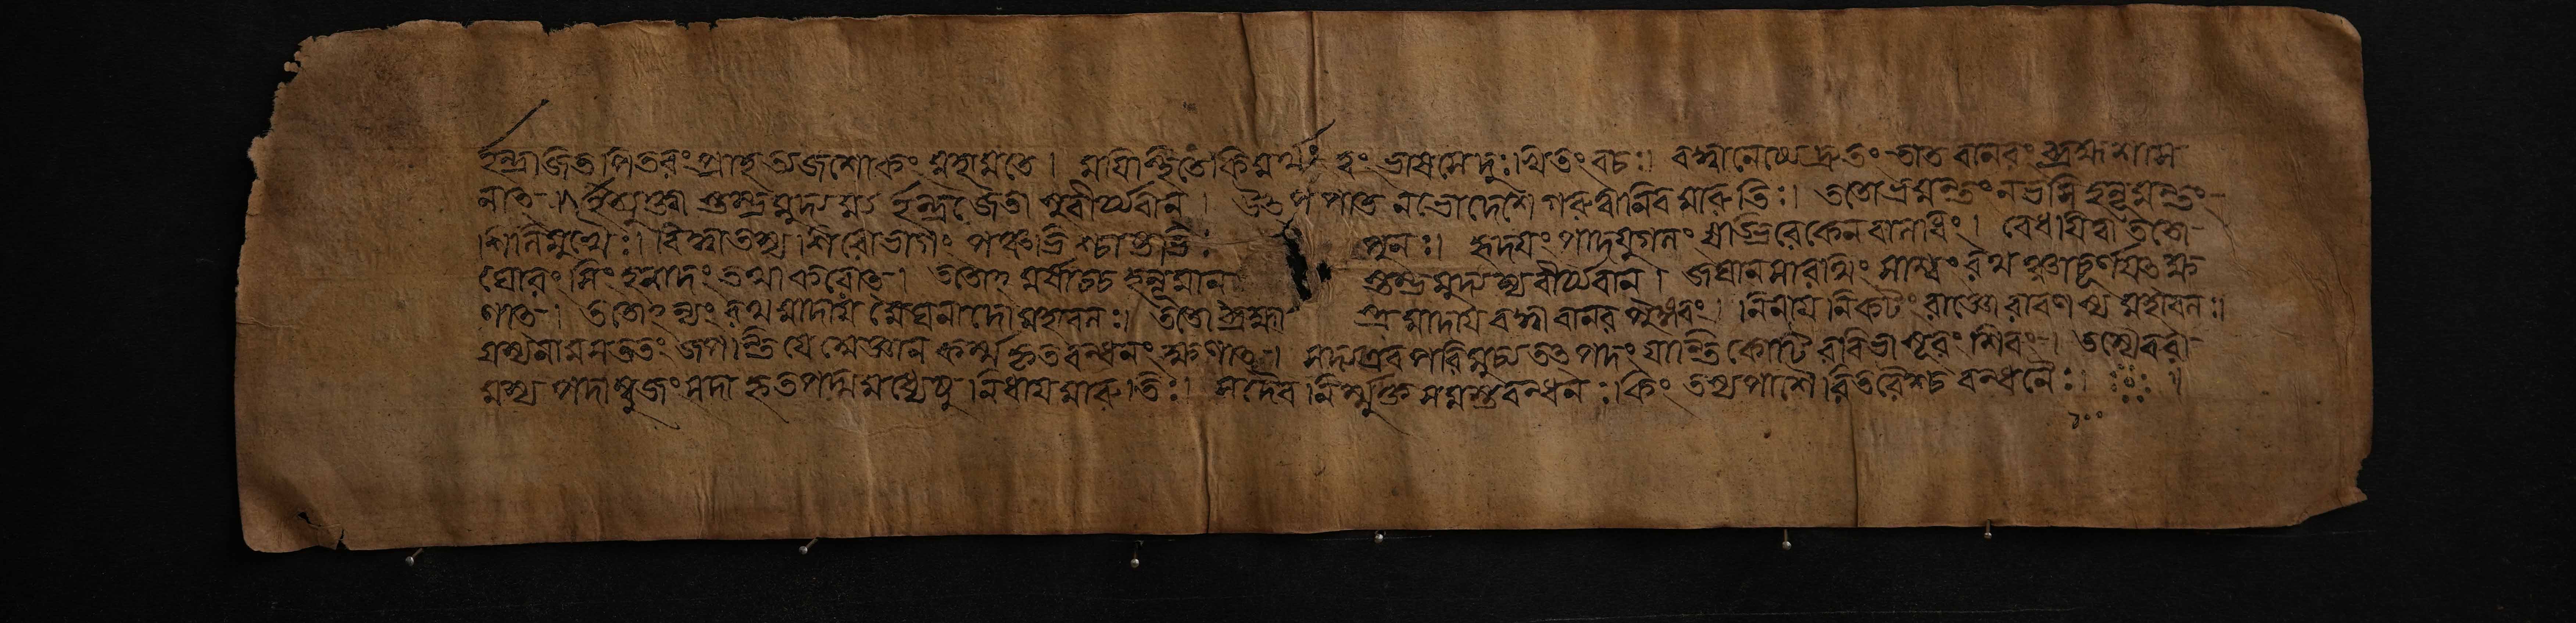 ইন্দ্রজিত পিতরং প্রাহ ত্যজ শোকং মহামতে । ময়ি স্থিতে কিমর্থং হং ভাষসে দুঃখিতং বচঃ । বদ্ধ্বানেষ্যে দ্রুতং তাত বানরং ব্রহ্মপাশ
নাৎ । ইত্যুক্ত্বা শুন্দ্রমুদ্যম্য ইন্দ্রজেতা সুবীর্য্যবান । উৎপপাত নভোদেশে গরুত্মানিব মারুতিঃ । ততো ভ্রমন্তং নভসি হনূমন্তং
শিলিমুখৈঃ । বিদ্ধ্বা তস্য শিরোভাগং পঞ্চাভিশ্চাষ্টাভিঃ পুনঃ । হৃদয়ং পাদযুগলং ষড়্ভিরেকেন বালধিং । বেধয়িত্বা ততো
ঘোরং সিংহনাদং তথা করোৎ । ততো ঽমর্ষাচ্চ হনূমান স্তম্ভমুদ্যম্য বীর্য্যবান । জঘান সারথিং সাশ্বং রথঞ্চাচূর্ণয়ৎ ক্ষ
ণাৎ । ততো ঽন্যং রথমাদায় মেঘনাদো মহাবলঃ । ততো ব্রহ্মাস্ত্রমাদায় বদ্ধ্বা বানরপুঙ্গবং । নিনায় নিকটং রাজ্ঞো রাবণস্য মহাবলঃ ।
যস্য নাম সততং জপন্তি যে অজ্ঞান কর্ম্মকৃতবন্ধনং ক্ষণাৎ । সদ্য এব পরিমুচ্য তৎপদং যান্তি কোটিরবিভাসুরং শিবং । তস্যৈব রা
মস্য পদাম্বুজং সদা হৃতপদ্মমধ্যেষু নিধায় মারুতিঃ । সদৈব নির্ম্মুক্ত সমস্তবন্ধনঃ কিং তস্য পাশৈরিতরৈশ্চ বন্ধনৈঃ ।